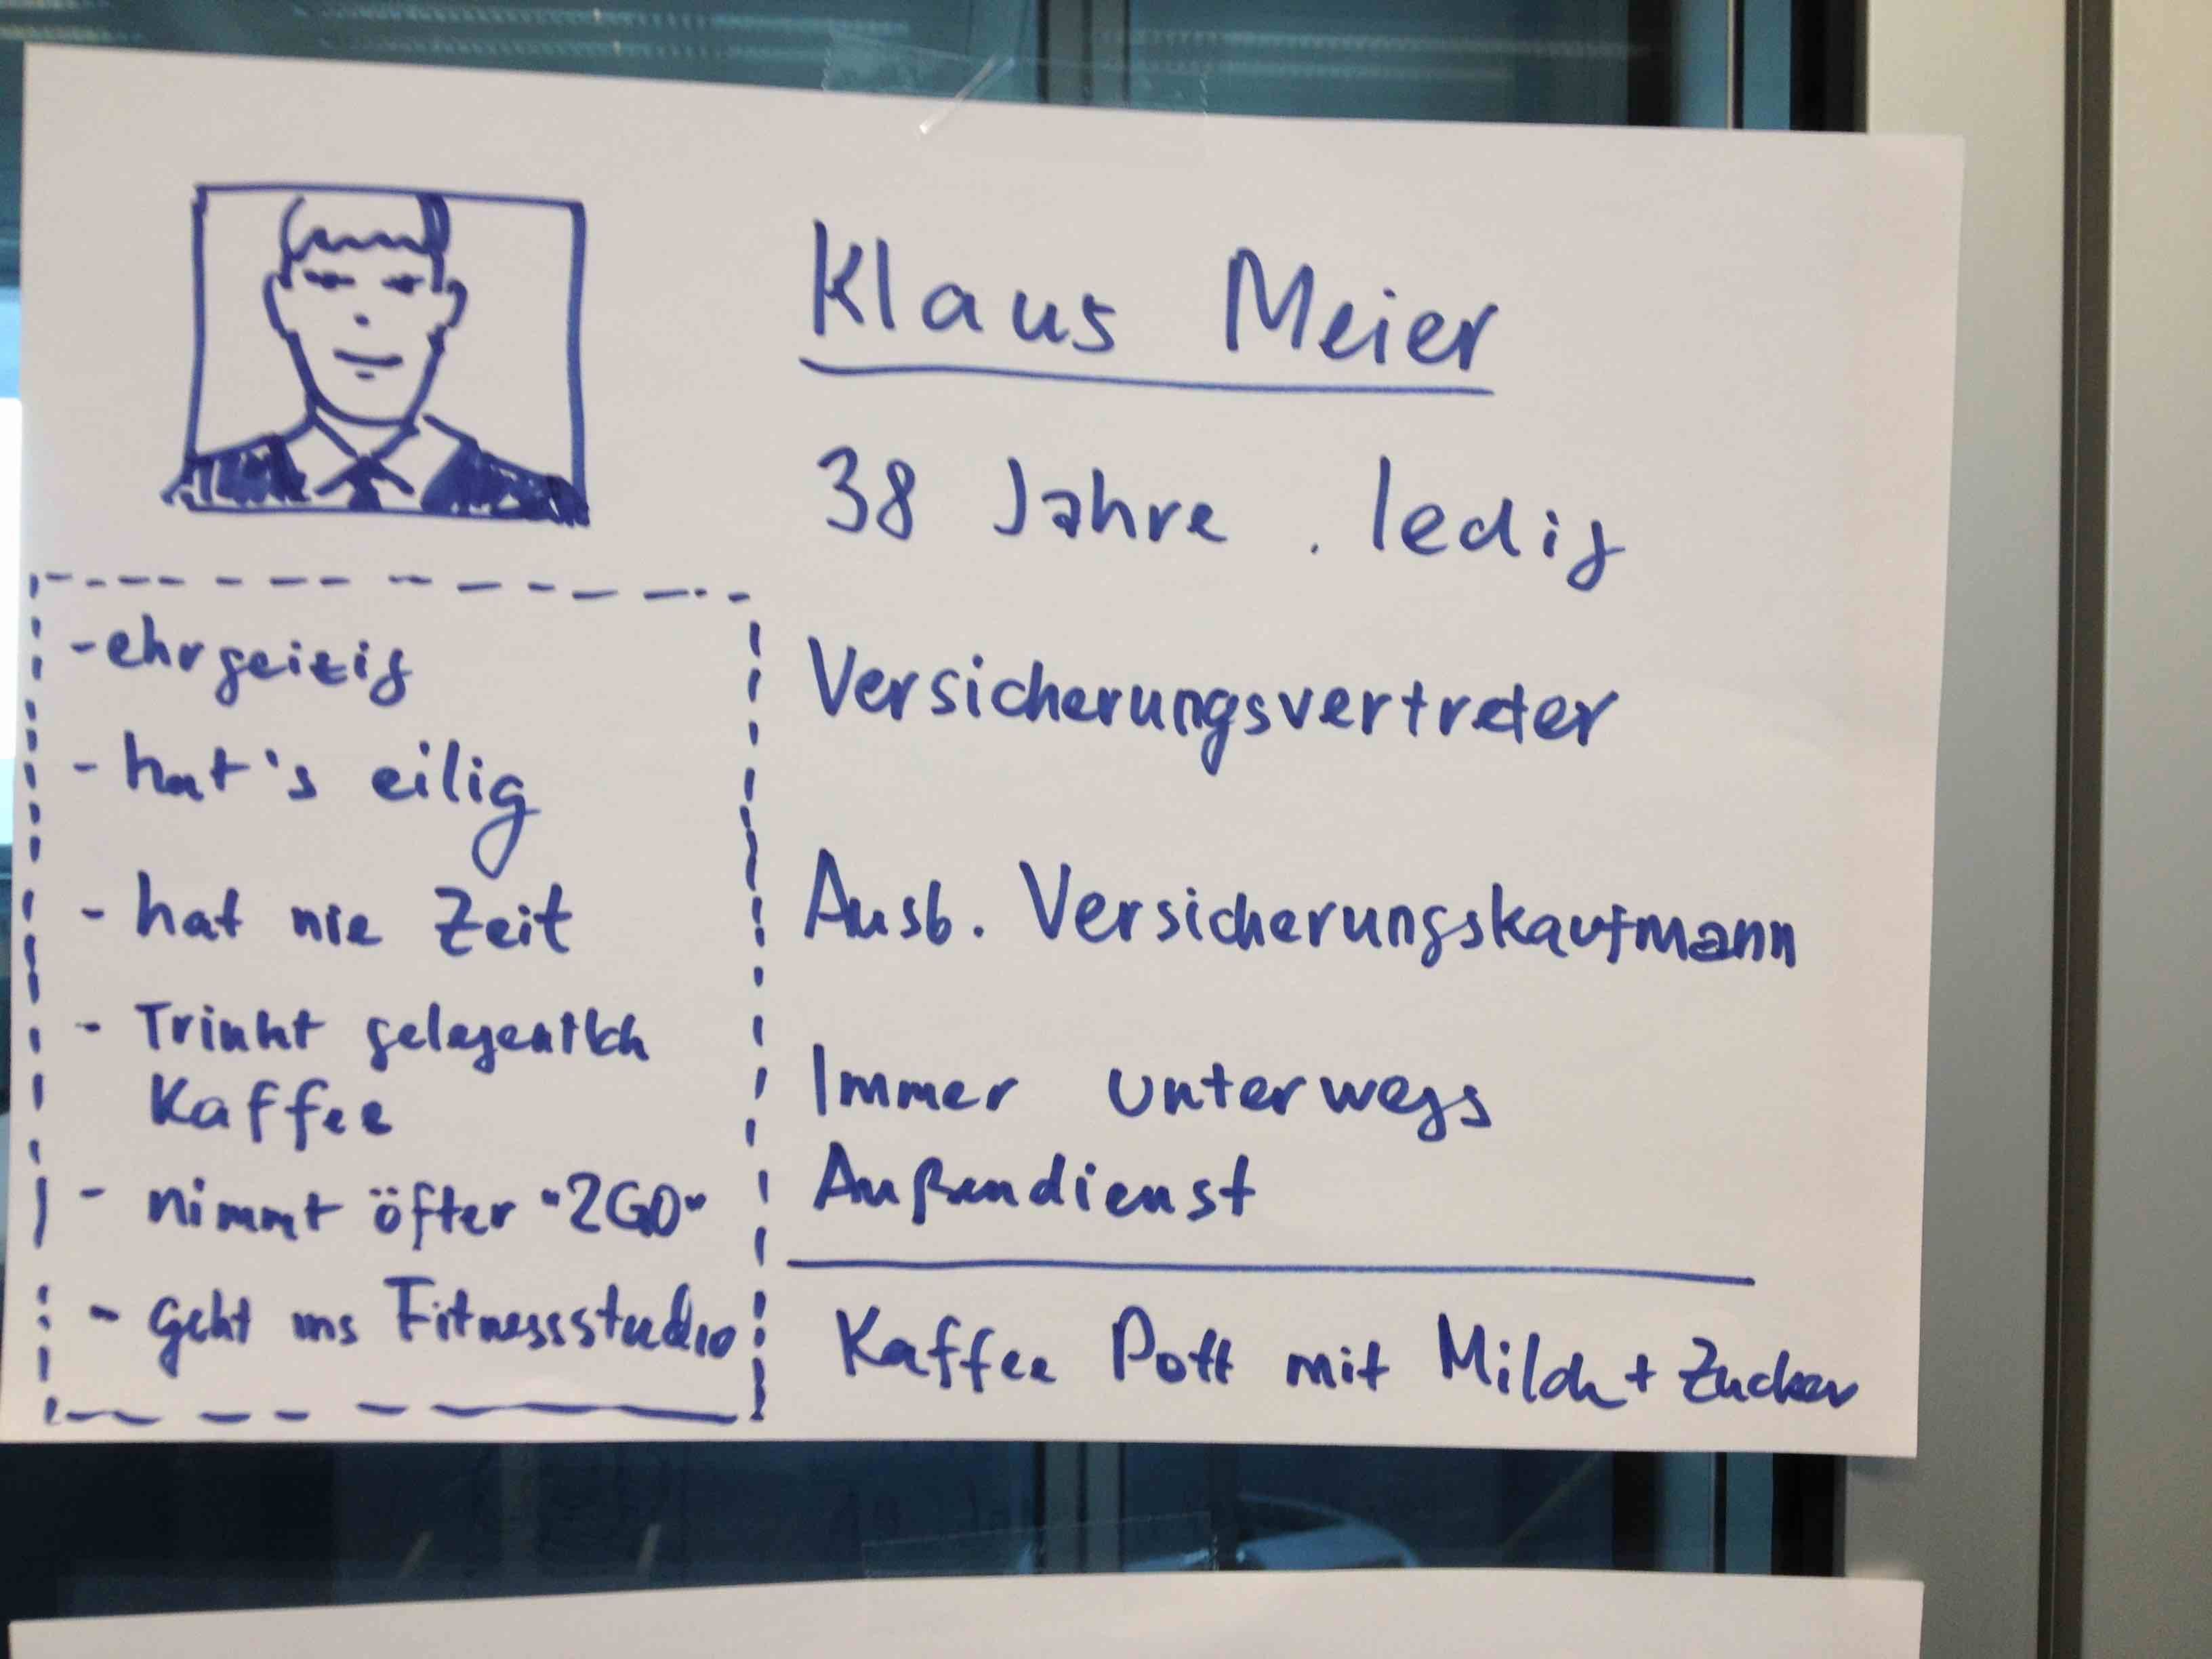 Klaus Meier
38 Jahre . ledig
Versicherungsvertreter
Ausb. Versicherungskaufmann
Immer unterwegs
Außendienst
Kaffee Pott mit Milch + Zucker
- ehrgeizig
- hat's eilig
- hat nie Zeit
- Trinkt gelegentlich
Kaffee
- nimmt öfter "2GO"
- geht ins Fitnessstudio